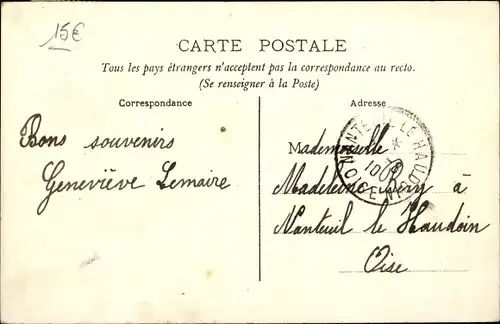 15€
CARTE POSTALE
Tous les pays étrangers n'acceptent pas la correspondance au recto.
(Se renseigner à la Poste)
Correspondance
Adresse
Bons souvenirs
Geneviève Lemaire
Mademoiselle
Madeleine à
Nanteuil le Haudoin
Oise